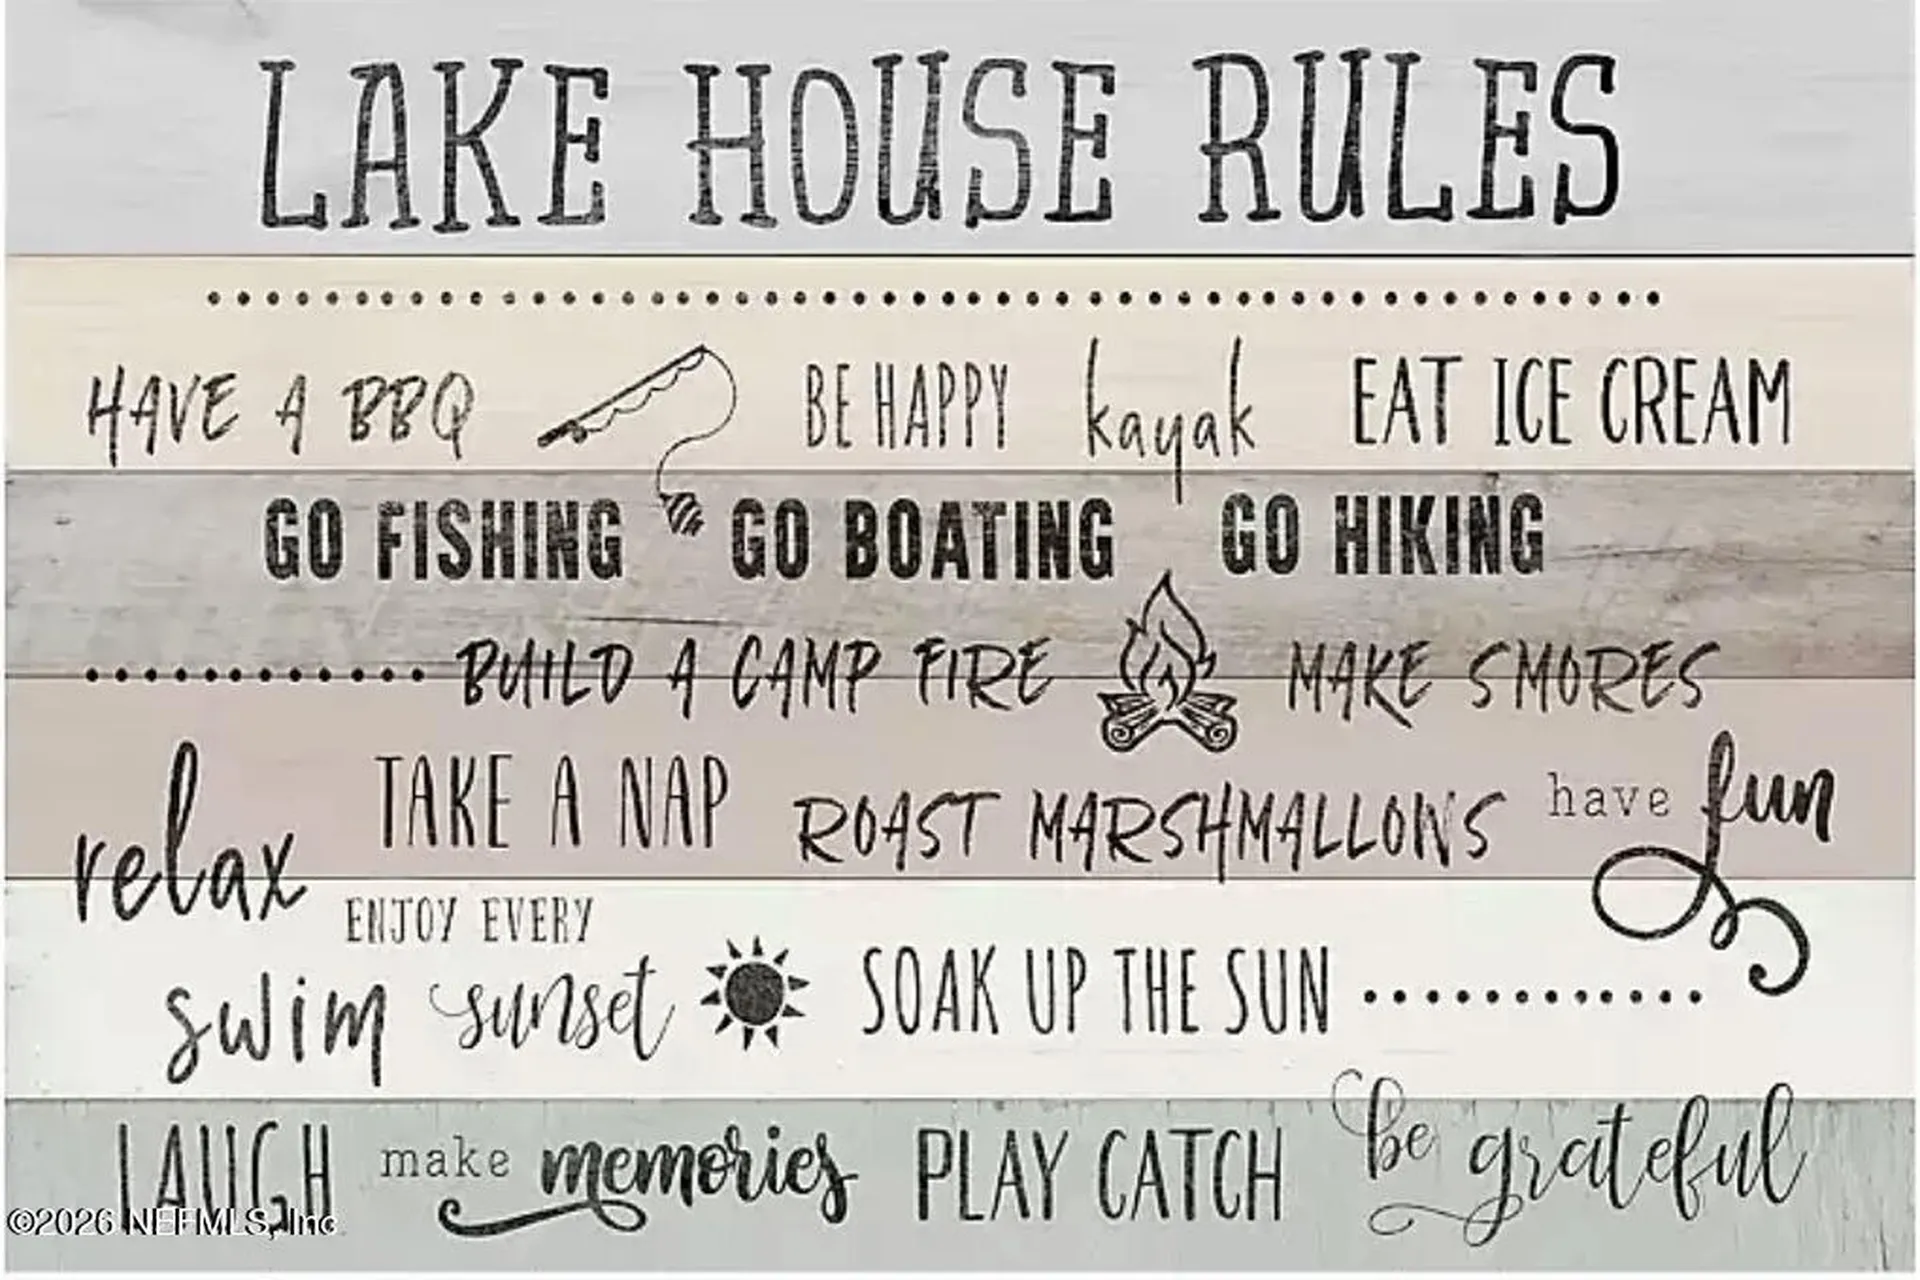 LAKE HOUSE RULES
HAVE A BBQ BE HAPPY kayak EAT ICE CREAM
GO FISHING GO BOATING GO HIKING
BUILD A CAMP FIRE MAKE SMORES
relax TAKE A NAP ROAST MARSHMALLOWS have fun
ENJOY EVERY
swim sunset SOAK UP THE SUN
LAUGH make memories PLAY CATCH be grateful
©2026 NEFMLS, Inc